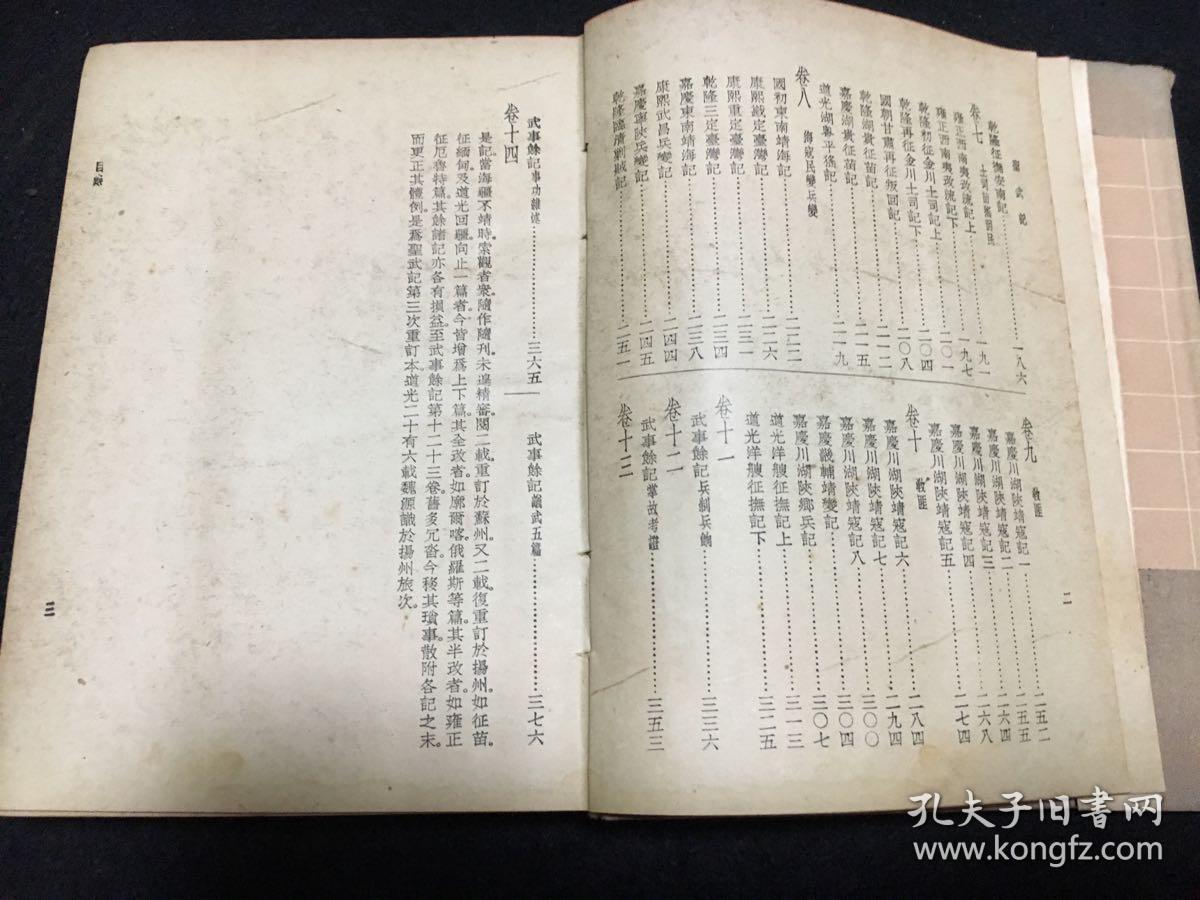 聖武記
二
乾隆征撫安南記……一八六
卷七 土司苗猺回民
雍正西南夷改流記上……一九一
雍正西南夷改流記下……一九七
乾隆初征金川土司記上……二〇一
乾隆再征金川土司記下……二〇四
國朝甘肅再征叛回記……二〇八
乾隆湖貴征苗記……二一二
嘉慶湖貴征苗記……二一五
道光湖粵平猺記……二一九
卷八 海寇民變兵變
國初東南靖海記……二二二
康熙戡定臺灣記……二二六
康熙重定臺灣記……二三一
乾隆三定臺灣記……二三四
嘉慶東南靖海記……二三八
康熙武昌兵變記……二四四
嘉慶寧陝兵變記……二四五
乾隆臨清剿賊記……二五一
卷九 敎匪
嘉慶川湖陝靖寇記一……二五二
嘉慶川湖陝靖寇記二……二五五
嘉慶川湖陝靖寇記三……二六四
嘉慶川湖陝靖寇記四……二六八
嘉慶川湖陝靖寇記五……二七四
卷十 敎匪
嘉慶川湖陝靖寇記六……二八四
嘉慶川湖陝靖寇記七……二九四
嘉慶川湖陝靖寇記八……三〇〇
嘉慶川湖陝鄉兵記……三〇四
嘉慶畿輔靖變記……三〇七
道光洋艘征撫記上……三一三
道光洋艘征撫記下……三二五
卷十一
武事餘記兵制兵餉……三三六
卷十二
武事餘記掌故考證……三五三
卷十三
武事餘記事功雜述……三六五
卷十四
武事餘記議武五篇……三七六
是記當海疆不靖時索觀者衆隨作隨刊未遑精審閱二載重訂於蘇州又二載復重訂於揚州如征苗。
征緬甸及道光回疆向止一篇者今皆增爲上下篇其全改者如廓爾喀俄羅斯等篇其半改者如雍正
征厄魯特篇其餘諸記亦各有損益至武事餘記第十二十三卷舊多冗沓今移其瑣事散附各記之末。
而更正其體例是爲聖武記第三次重訂本道光二十有六載魏源識於揚州旅次。
目錄
三
孔夫子旧书网
www.kongfz.com